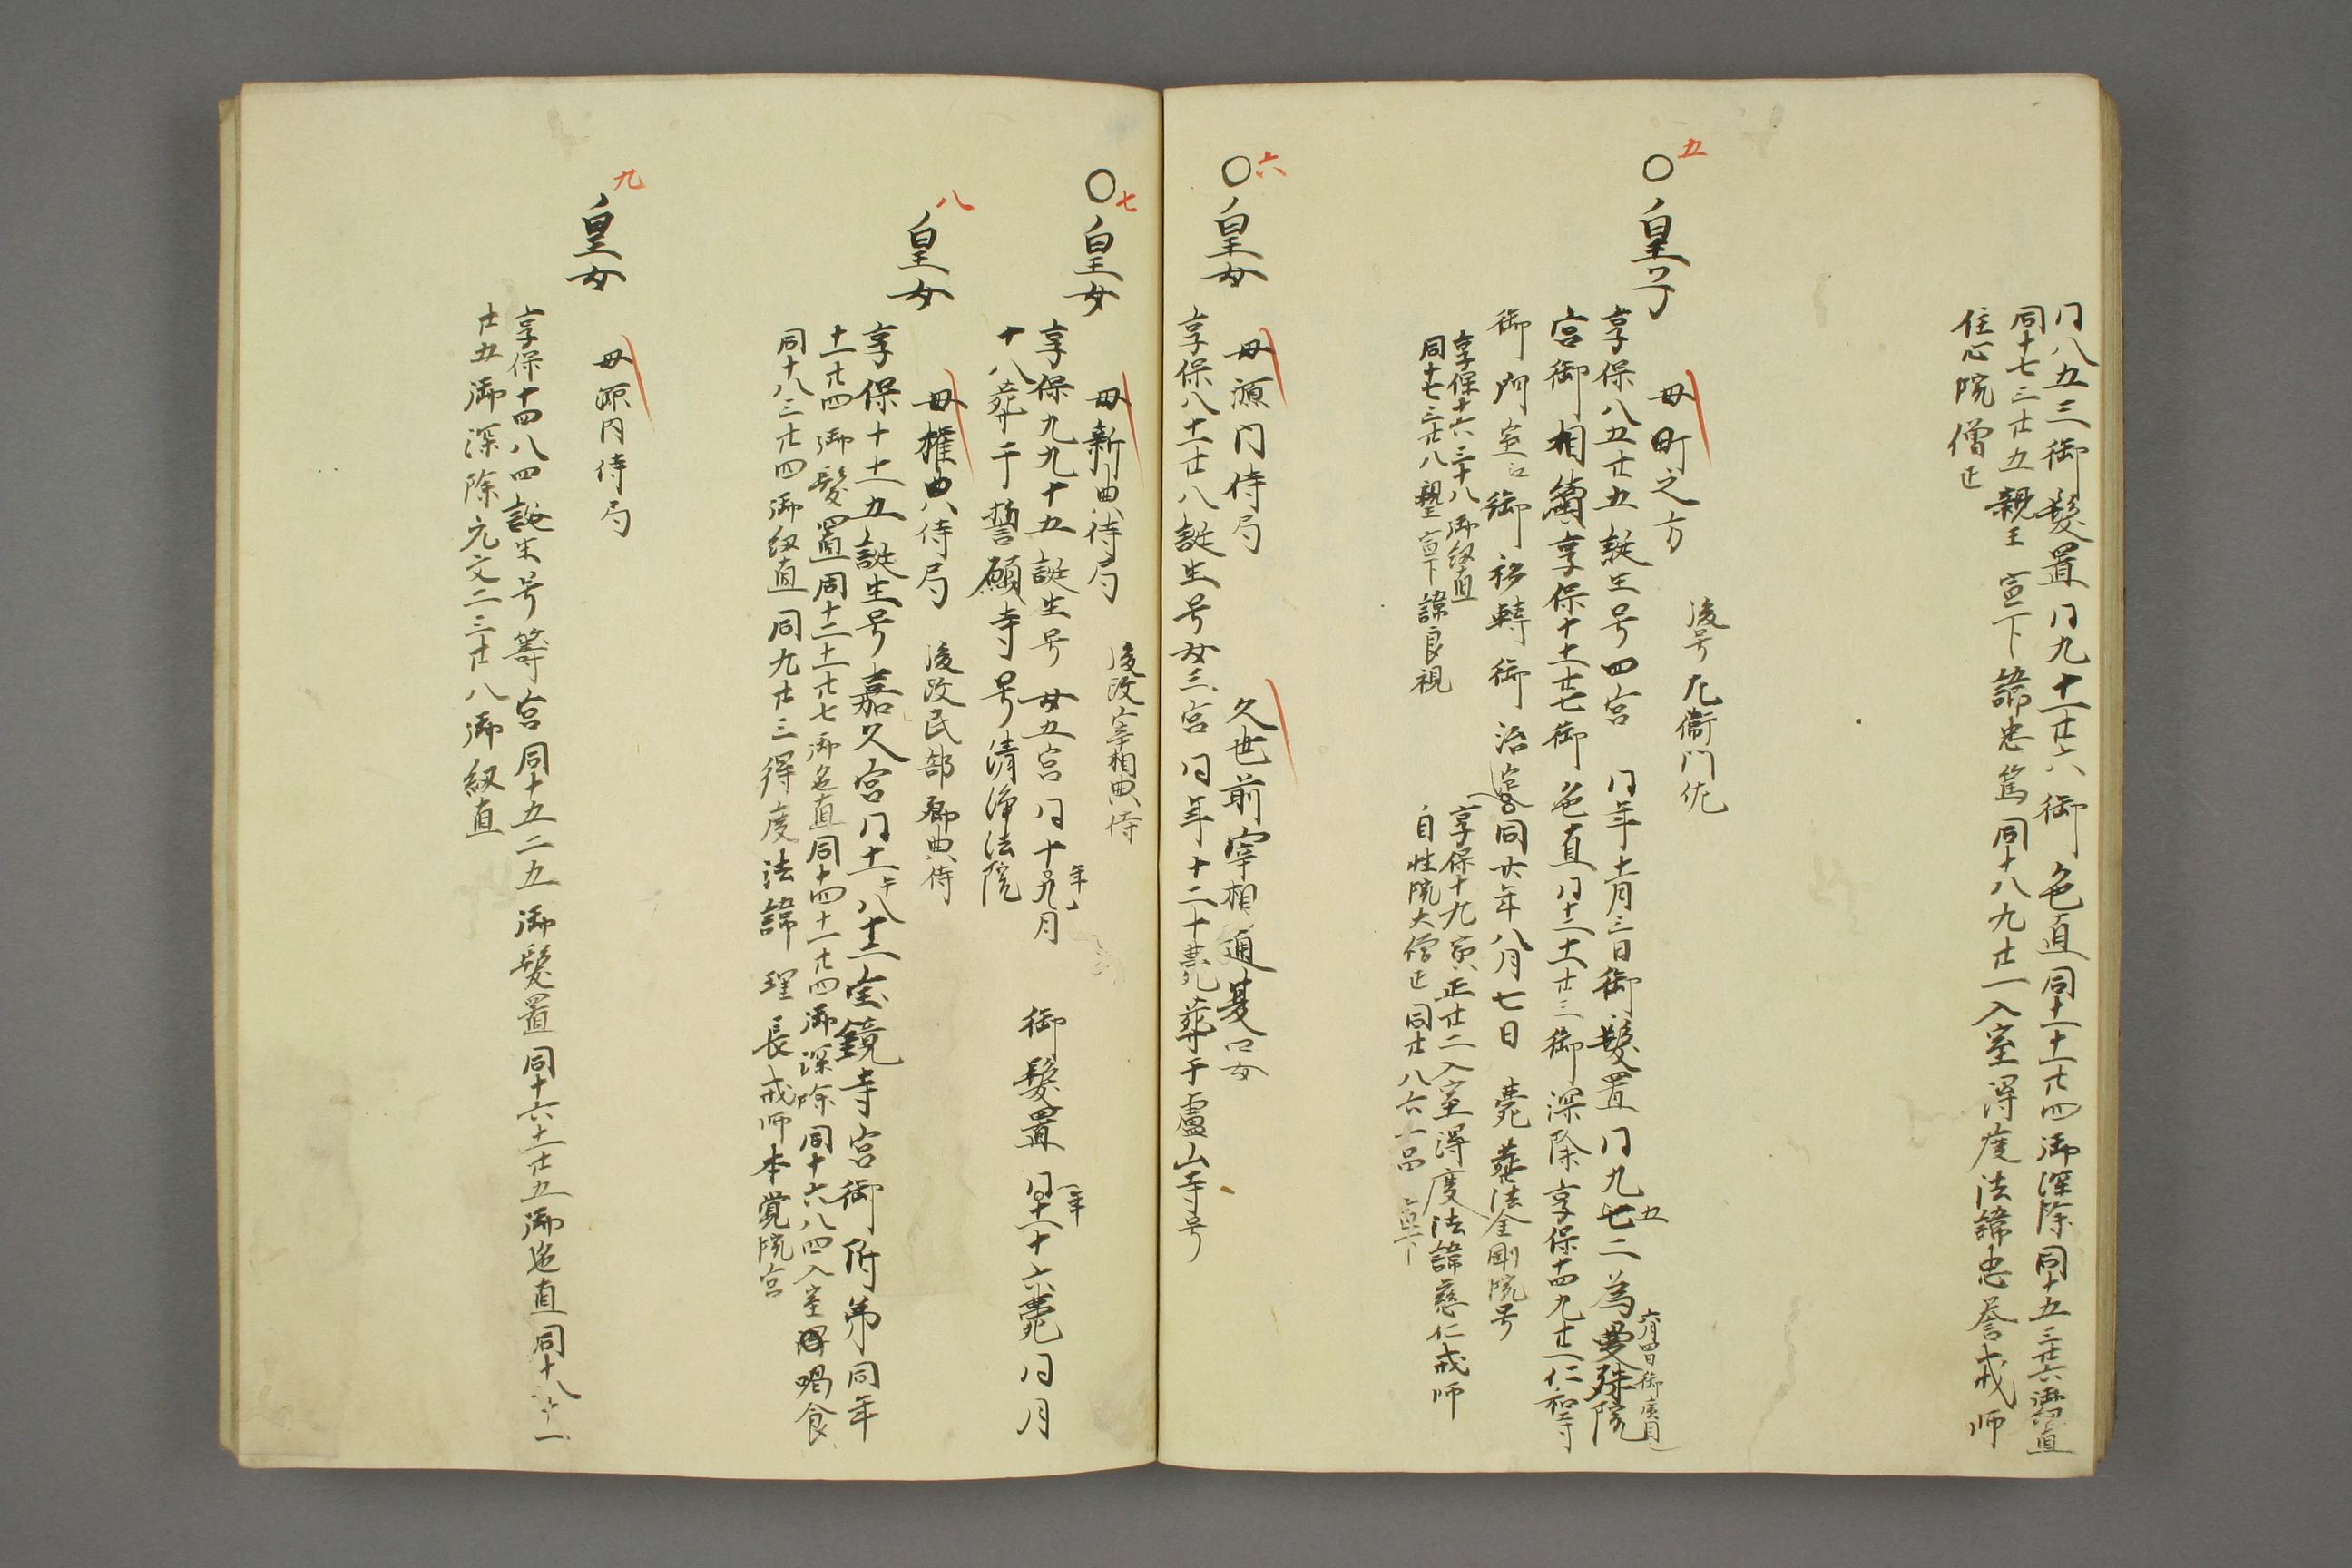 同八五三御髪置同九十一廿六御色直同十一十一廿四御深除同十五三廿六御紐直
同十七三廿五親王宣下諱忠篤同十八九廿一入室得度法諱忠誉戒师
住心院僧正
五
〇皇子
母町之方
後号左衛門佐
享保八五廿五誕生号四宮 同年十一月三日御髪置同九七二為曼殊院
五
六月四日御廣目
宮御相續享保十十一廿七御色直同十二十一廿三御深除享保十四九廿一仁和寺
御門室江御移轉御治定同廿年八月七日薨葬法金剛院号
享保十六三十八御紐直
同十七三廿八親王宣下諱良視
享保十九寅正廿二入室得度法諱慈仁戒师
自性院大僧正同廿八六一品宣下
六
〇皇女
母源内侍局
久世前宰相通夏口女
享保八十一廿八誕生号女三宮同年十二十薨葬于盧山寺号
七
〇皇女
母新典侍局
後改宰相典侍
享保九九十五誕生号女五宮同十年九月 御髪置同十一年十六薨同月
十八葬于誓願寺号清浄法院
八
皇女
母権典侍局
後改民部卿典侍
享保十十一五誕生号嘉久宮同十一年八十一宝鏡寺宮御附弟同年
十一廿四御髪置同十二十一廿七御色直同十四十一廿四御深除同十六八四入室得喝食
同十八三廿四御紐直同九廿三得度法諱理長戒师本覚院宮
九
皇女
母源内侍局
享保十四八四誕生号籌宮同十五二五御髪置同十六十一廿五御色直同十八十一
廿五御深除元文二三廿八御紐直